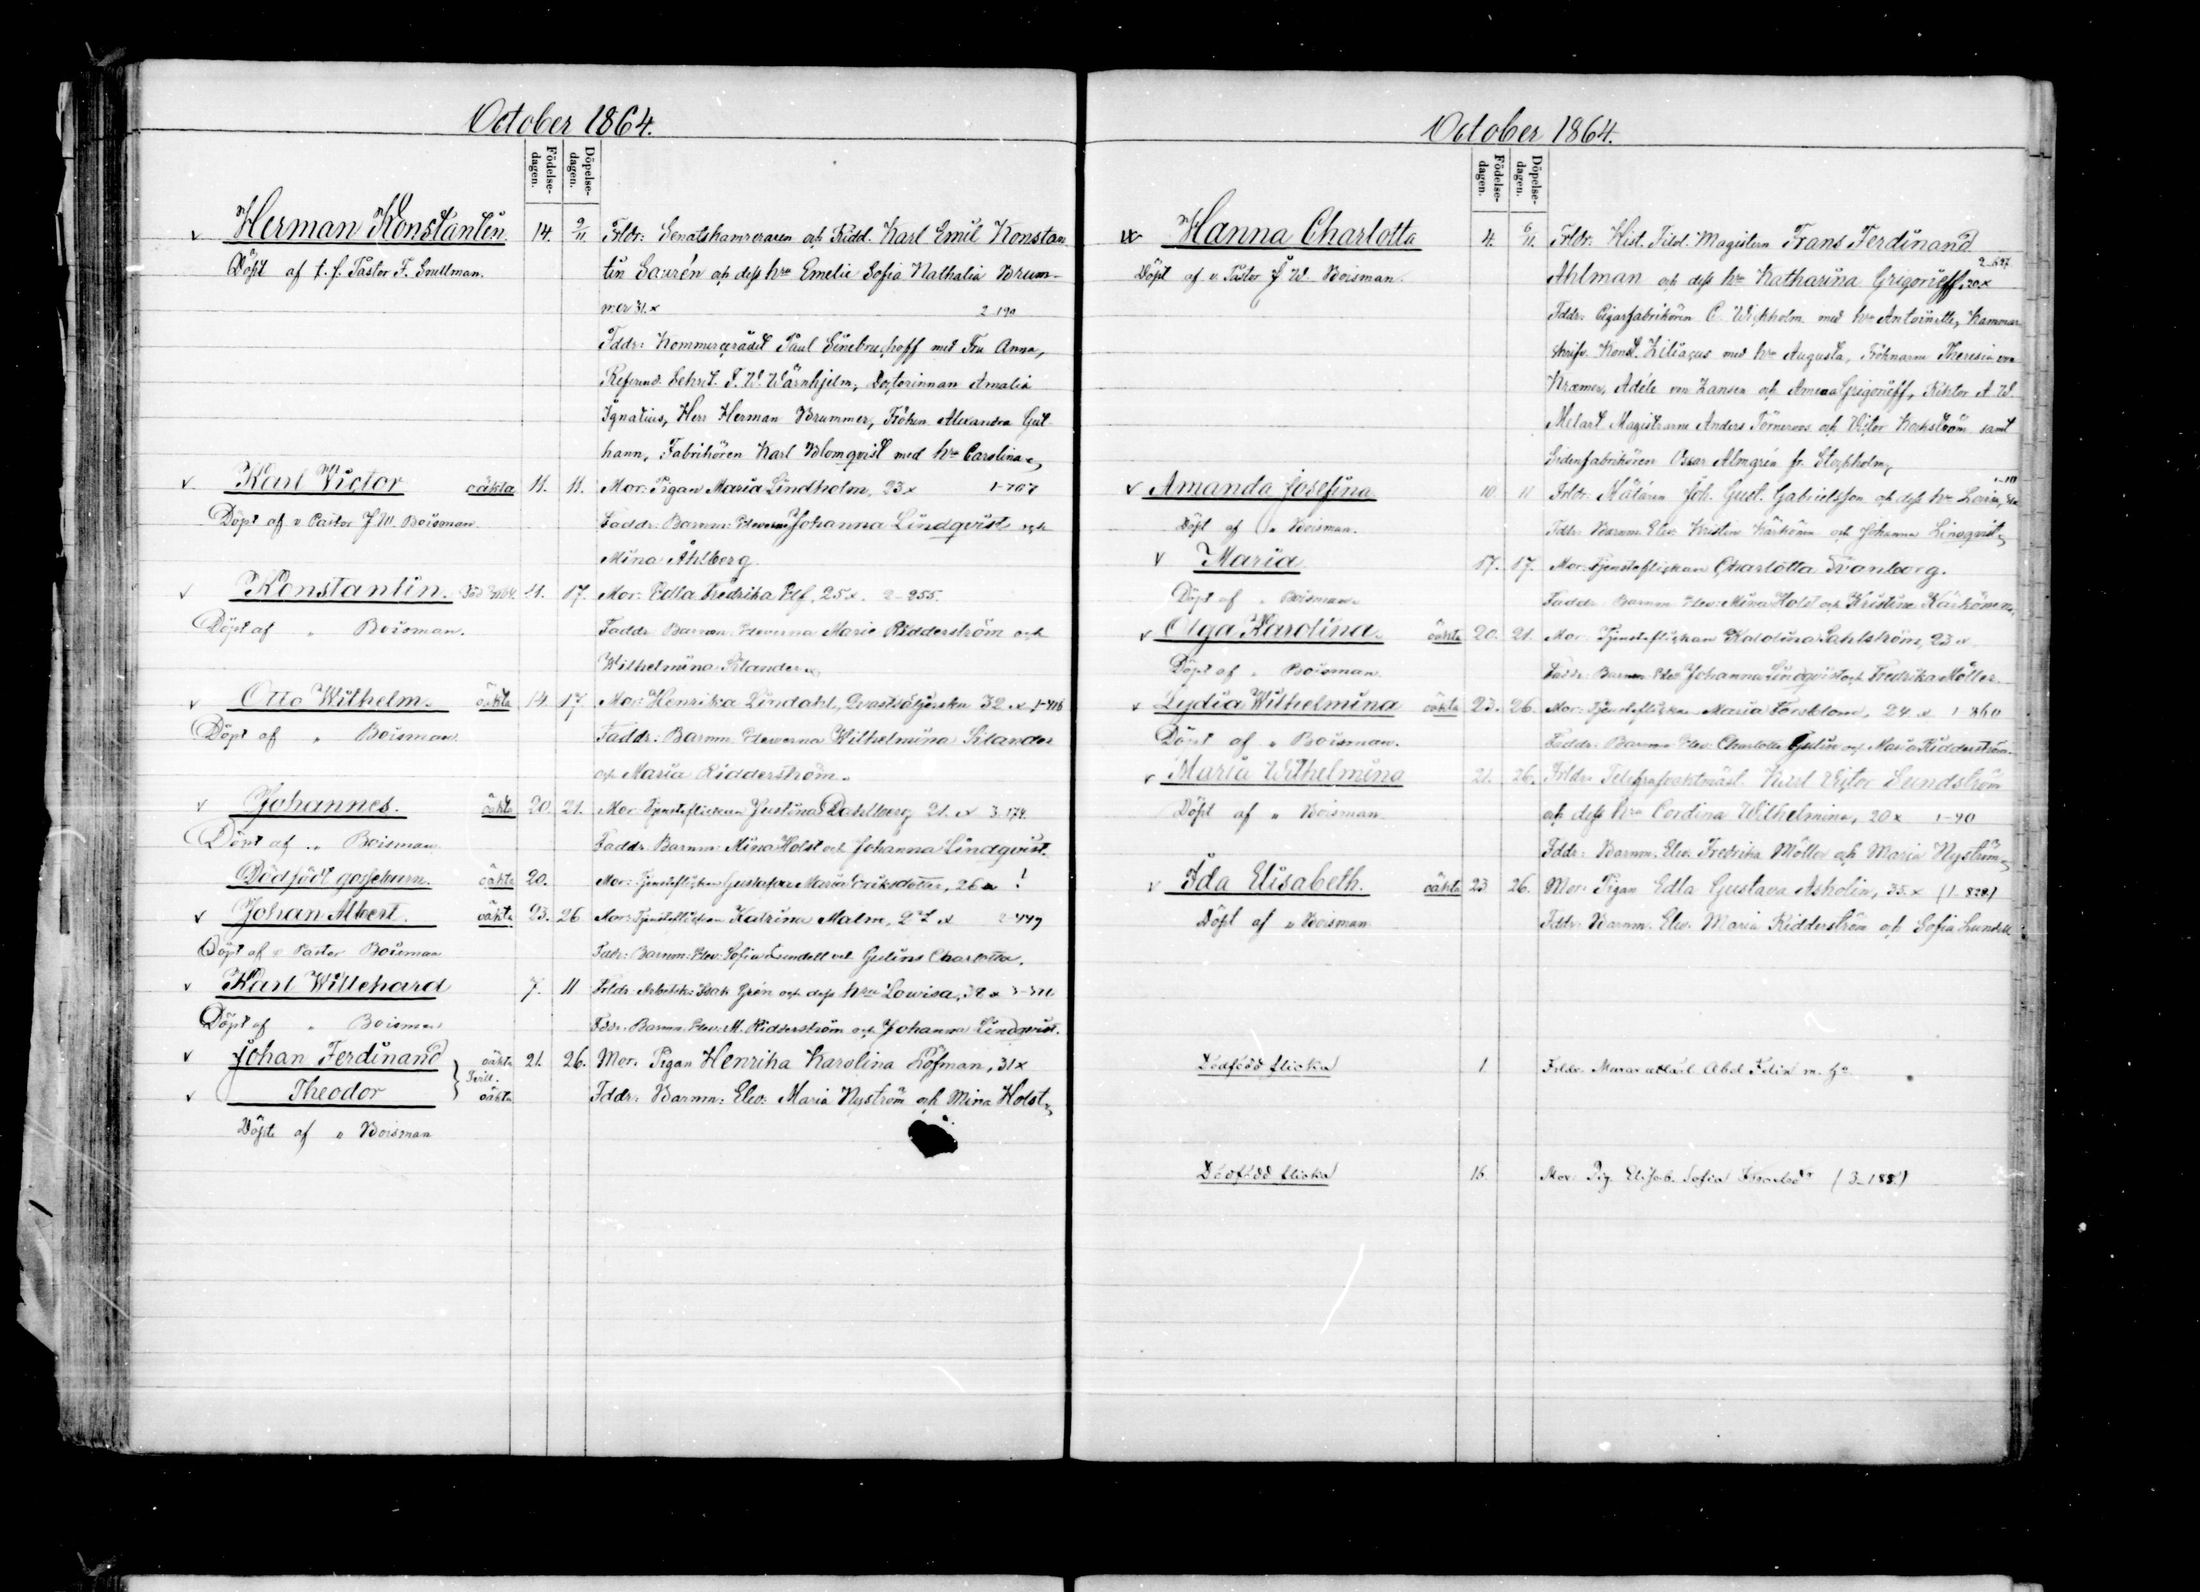 October 1864.
Födelse-dagen. Döpelse-dagen.
Herman Konstantin 14. 9/11. Frldr: Senatskamreraren och Ridd. Karl Emil Konstan
Döpt af t. f. Pastor F. Snellman. tin Saurén och dess hru Emelie Sofia Nathalia Brum-
mer 31 x 2-190
Fddr: Kommercerådet Paul Sinebruchoff med Fru Anna,
Referend. Sekret. T. W. Wärnhjelm, Doctorinnan Amalia
Ignatius, Herr Herman Brummer, Fröken Alexandra
hann, Fabrikören Karl Blomqvist med hru Carolina
Karl Victor oäkta 11. 11. Mor: Pigan Maria Lindholm, 23 x 1-707
Döpt af v Pastor J. W. Boisman. Faddr: Barnm: Eleverna Johanna Lindqvist och
Mina Åhlberg.
Konstantin. 11. 17. Mor: Edla Fredrika Elf, 25 x. 2-255.
Döpt af " Boisman. Faddr: Barnm: Eleverna Maria Ridderström och
Wilhelmina Silander
Otto Wilhelm. oäkta 14. 17 Mor: Henrika Lindahl, 32 x 1-716
Döpt af " Boisman. Faddr: Barnm: Eleverna Wilhelmina Silander
och Maria Ridderström.
Johannes. oäkta 20. 21. Mor: Tjensteflickan Justina Dahlberg 21. x 3-174
Döpt af " Boisman. Faddr: Barnm: Mina Holst och Johanna Lindqvist.
Dödfödt gossebarn. oäkta 20. Mor: Tjensteflickan Gustafva Maria Eriksdotter, 26 x !
Johan Albert. oäkta 23. 26 Mor: Tjensteflickan Katrina Malm,
Döpt af v Pastor Boisman Fddr: Barnm: Elev: Sofia Lundell och Gulins Charlotta.
Karl Willehard 7. 11 Frldr: Arbetsk: Isak Grén och dess hru Lowisa,
Döpt af " Boisman Fddr: Barnm: Elev: M. Ridderström och Johanna Lindqvist.
Johan Ferdinand oäkta 21. 26. Mor: Pigan Henrika Karolina Löfman, 31 x
Tvill.
Theodor oäkta Fddr: Barnm: Elev: Maria Nyström och Mina Holst
Döpte af v Boisman
October 1864.
Födelse-dagen. Döpelse-dagen.
Hanna Charlotta 4. 6/11. Frldr: Hist. Filol. Magistern Frans Ferdinand
Döpt af v. Pastor J. W. Boisman. Ahlman och dess hru Katharina Grigorieff, 20 x
Fddr: Cigarfabrikören C. Wickholm med hru Antoinette, Kammar
skrifv. Konst. Ziliacus med hru Augusta, Fröknarne Theresia von
Kræmer, Adéle von Zansen och Amena Grigorieff, Rektor A. W.
Melart Magistrarne Anders Törneroos och Victor Heikström samt
Sidenfabrikören Oscar Almgrén fr. Stockholm
Amanda Josefina 10. 11 Frldr: Målaren Joh. Gust. Gabrielsson och dess hru
Döpt af v Boisman. Fddr: Barnm. Elev: Kristin Kärkönen och Johanna Linqvist
Maria 17. 17. Mor: Tjensteflickan Charlotta Tranberg.
Döpt af " Boisman. Faddr: Barnm: Elev: Mina Holst och Kristina Kärkönen
Olga Karolina. oäkta 20. 21. Mor: Tjensteflickan Karolina Sahlström, 23 x
Döpt af " Boisman. Faddr: Barnm: Elev: Johanna Lindqvist och Fredrika Möller.
Lydia Wilhelmina oäkta 23. 26. Mor: Tjensteflickan Maria Forsblom, 24 x 1-860
Döpt af " Boisman. Faddr: Barnm: Elev: Charlotta Gulin och Maria Ridderström.
Maria Wilhelmina 21. 26. Frldr: Telegrafvaktmäst. Karl Victor Lundström
Döpt af " Boisman och dess hru Cordina Wilhelmina, 20 x 1-90
Fddr: Barnm: Elev: Fredrika Möller och Maria Nyström
Ida Elisabeth. oäkta 23 26. Mor: Pigan Edla Gustava Asholin, 35 x (1-828)
Döpt af " Boisman Fddr: Barnm. Elev: Maria Ridderström och Sofia Lundell
Dödfödd flicka 1. Frldr: Murareutlärl. Abel Felix m. H:u
Dödfödd flicka 15. Mor: Pig. Elisab. Sofia (3-188)